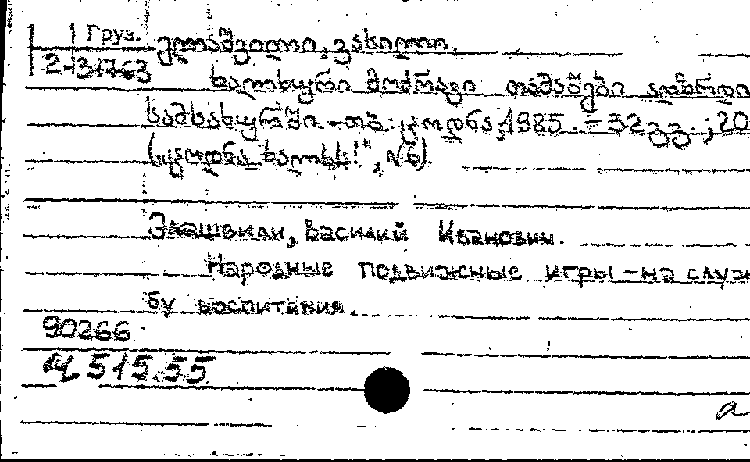 Груз.
ელაშვილი, ვასილი.
2-31763
ხალხური მოძრავი თამაშები აღზრდის
სამსახურში. - თბ.: ცოდნა, 1985. - 32 გვ.; 20
(ცოდნა ხალხს!", №6)
Элашвили, Василий Иванович.
Народные подвижные игры - на служ
бу воспитания.
90266
Ч515.55
а